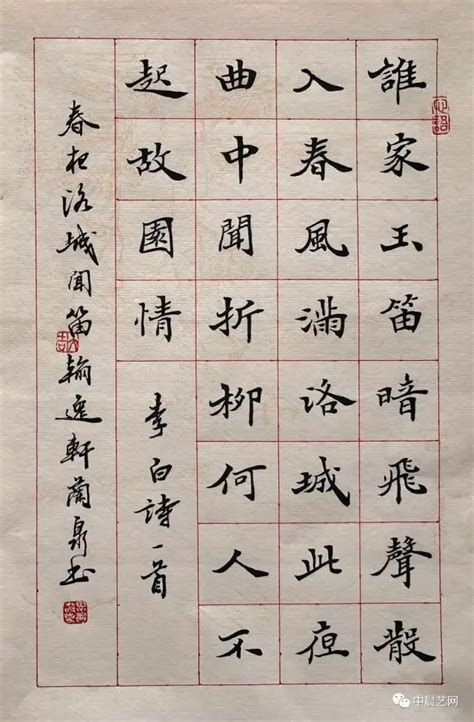 誰家玉笛暗飛聲散
入春風滿洛城此夜
曲中聞折柳何人不
起故園情 李白詩一首
春夜洛城聞笛 翰逸軒蘭泉书
中晨艺网